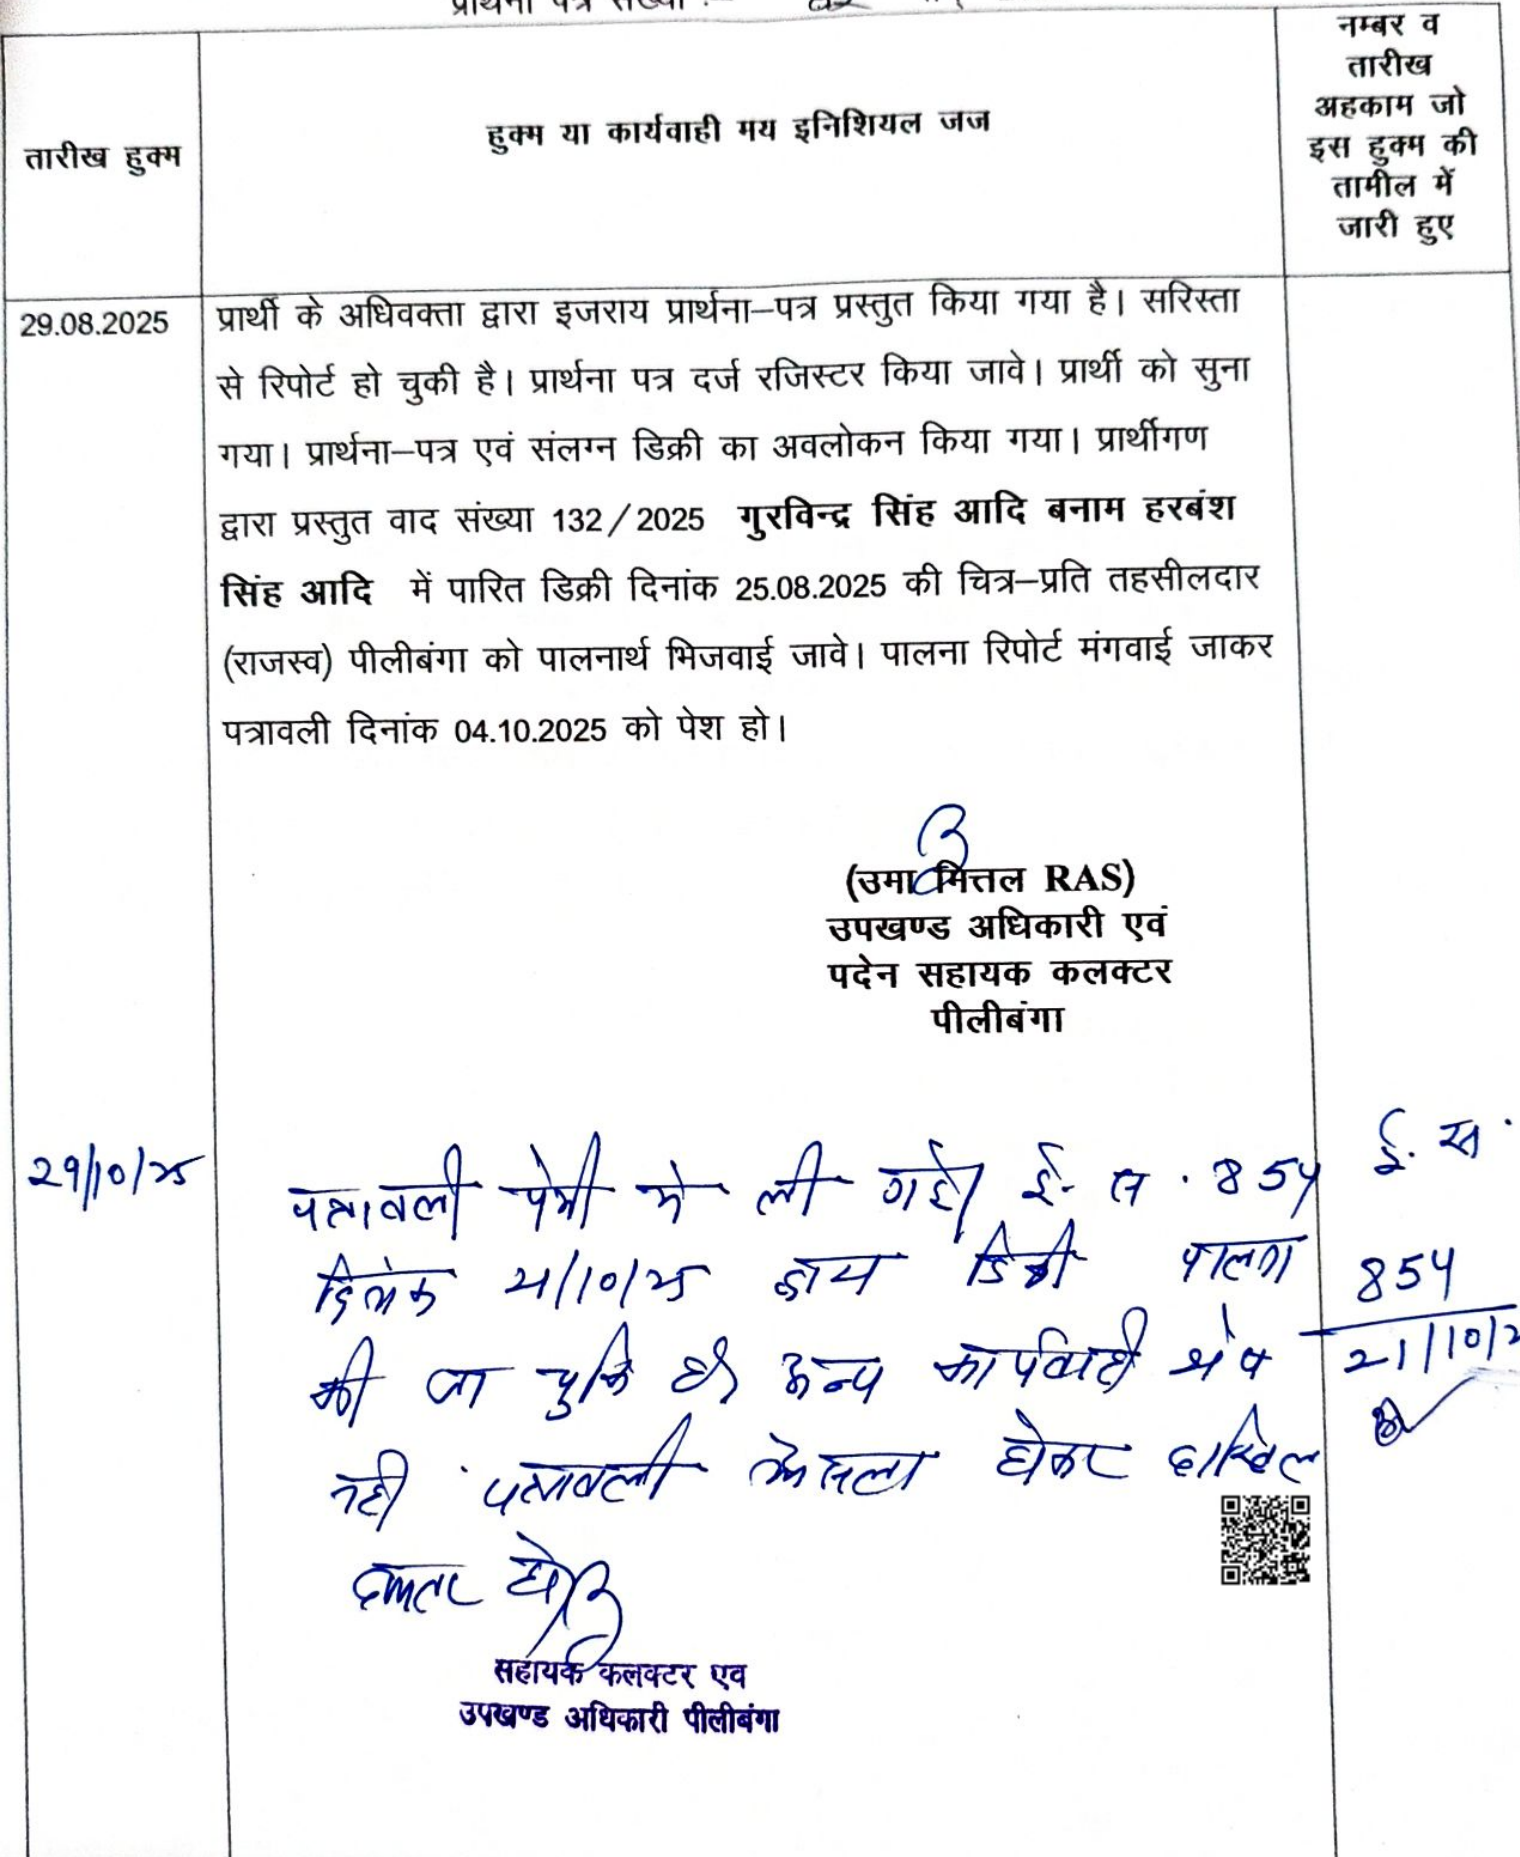 प्रार्थना पत्र संख्या :-
तारीख हुक्म
हुक्म या कार्यवाही मय इनिशियल जज
नम्बर व
तारीख
अहकाम जो
इस हुक्म की
तामील में
जारी हुए
29.08.2025
प्रार्थी के अधिवक्ता द्वारा इजराय प्रार्थना–पत्र प्रस्तुत किया गया है। सरिस्ता
से रिपोर्ट हो चुकी है। प्रार्थना पत्र दर्ज रजिस्टर किया जावे। प्रार्थी को सुना
गया। प्रार्थना–पत्र एवं संलग्न डिक्री का अवलोकन किया गया। प्रार्थीगण
द्वारा प्रस्तुत वाद संख्या 132/2025 गुरविन्द्र सिंह आदि बनाम हरबंश
सिंह आदि में पारित डिक्री दिनांक 25.08.2025 की चित्र–प्रति तहसीलदार
(राजस्व) पीलीबंगा को पालनार्थ भिजवाई जावे। पालना रिपोर्ट मंगवाई जाकर
पत्रावली दिनांक 04.10.2025 को पेश हो।
(उमा मित्तल RAS)
उपखण्ड अधिकारी एवं
पदेन सहायक कलक्टर
पीलीबंगा
29/10/25
पत्रावली पेशी मे ली गई। ई. स. 854
दिनांक 21/10/25 द्वारा डिक्री पालना
की जा चुकि है। अन्य कार्यवाही शेष
नही पत्रावली फैसला होकर दाखिल
दफ्तर हो।
ई. स.
854
21/10/2
सहायक कलक्टर एव
उपखण्ड अधिकारी पीलीबंगा